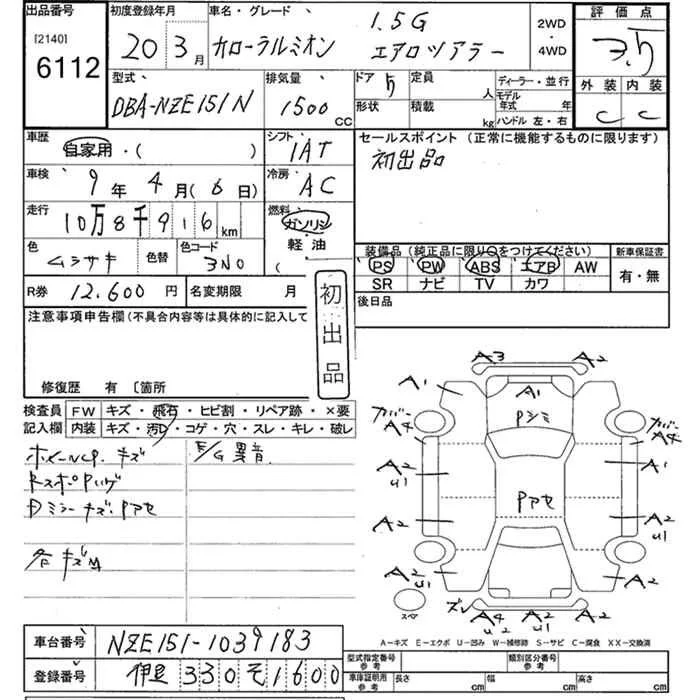 出品番号
[2140]
6112
初度登録年月
20 3月
車名・グレード
カローラルミオン
1.5G
エアロツアラー
2WD
・
4WD
評価点
3.5
外装 内装
C C
型式
DBA-NZE151N
排気量
1500 CC
ドア 5
定員 人
形状
積載 kg
ディーラー・並行
モデル年式 年
ハンドル 左・右
車歴
自家用・( )
シフト
1AT
セールスポイント(正常に機能するものに限ります)
初出品
車検
9年 4月(6日)
冷房
AC
走行
10万8千916 km
燃料
ガソリン
軽・油
(
色
ムラサキ
色替
色コード
3N0
装備品(純正品に限り○をつけてください)
新車保証書
PS PW ABS エアB AW
SR ナビ TV カワ
有・無
R券 12,600 円
名変期限 月
初出品
後日品
注意事項申告欄(不具合内容等は具体的に記入して
修復歴 有 〔箇所
検査員
記入欄
FW キズ・飛石・ヒビ割・リペア跡・×要
内装 キズ・汚レ・コゲ・穴・スレ・キレ・破レ
ホイールCP.キズ
E/G異音
Dミラーキズ.Pアセ
各キズ
A3 A2
A1 A1
Pシミ
カバー A4
カバー A4
A2 U1
A1
Pアセ
A2
A2 U1
A2 U1
A2
スペア
ズレ A4 U2
A2 U1
A2
A-キズ E-エクボ U-凹み W-補修跡 S-サビ C-腐食 XX-交換済
車台番号 NZE151-1039183
登録番号 伊豆 330 そ 1600
型式指定番号
参考
類別区分番号
参考
車庫証明用
参考
長さ cm 幅 cm 高さ cm